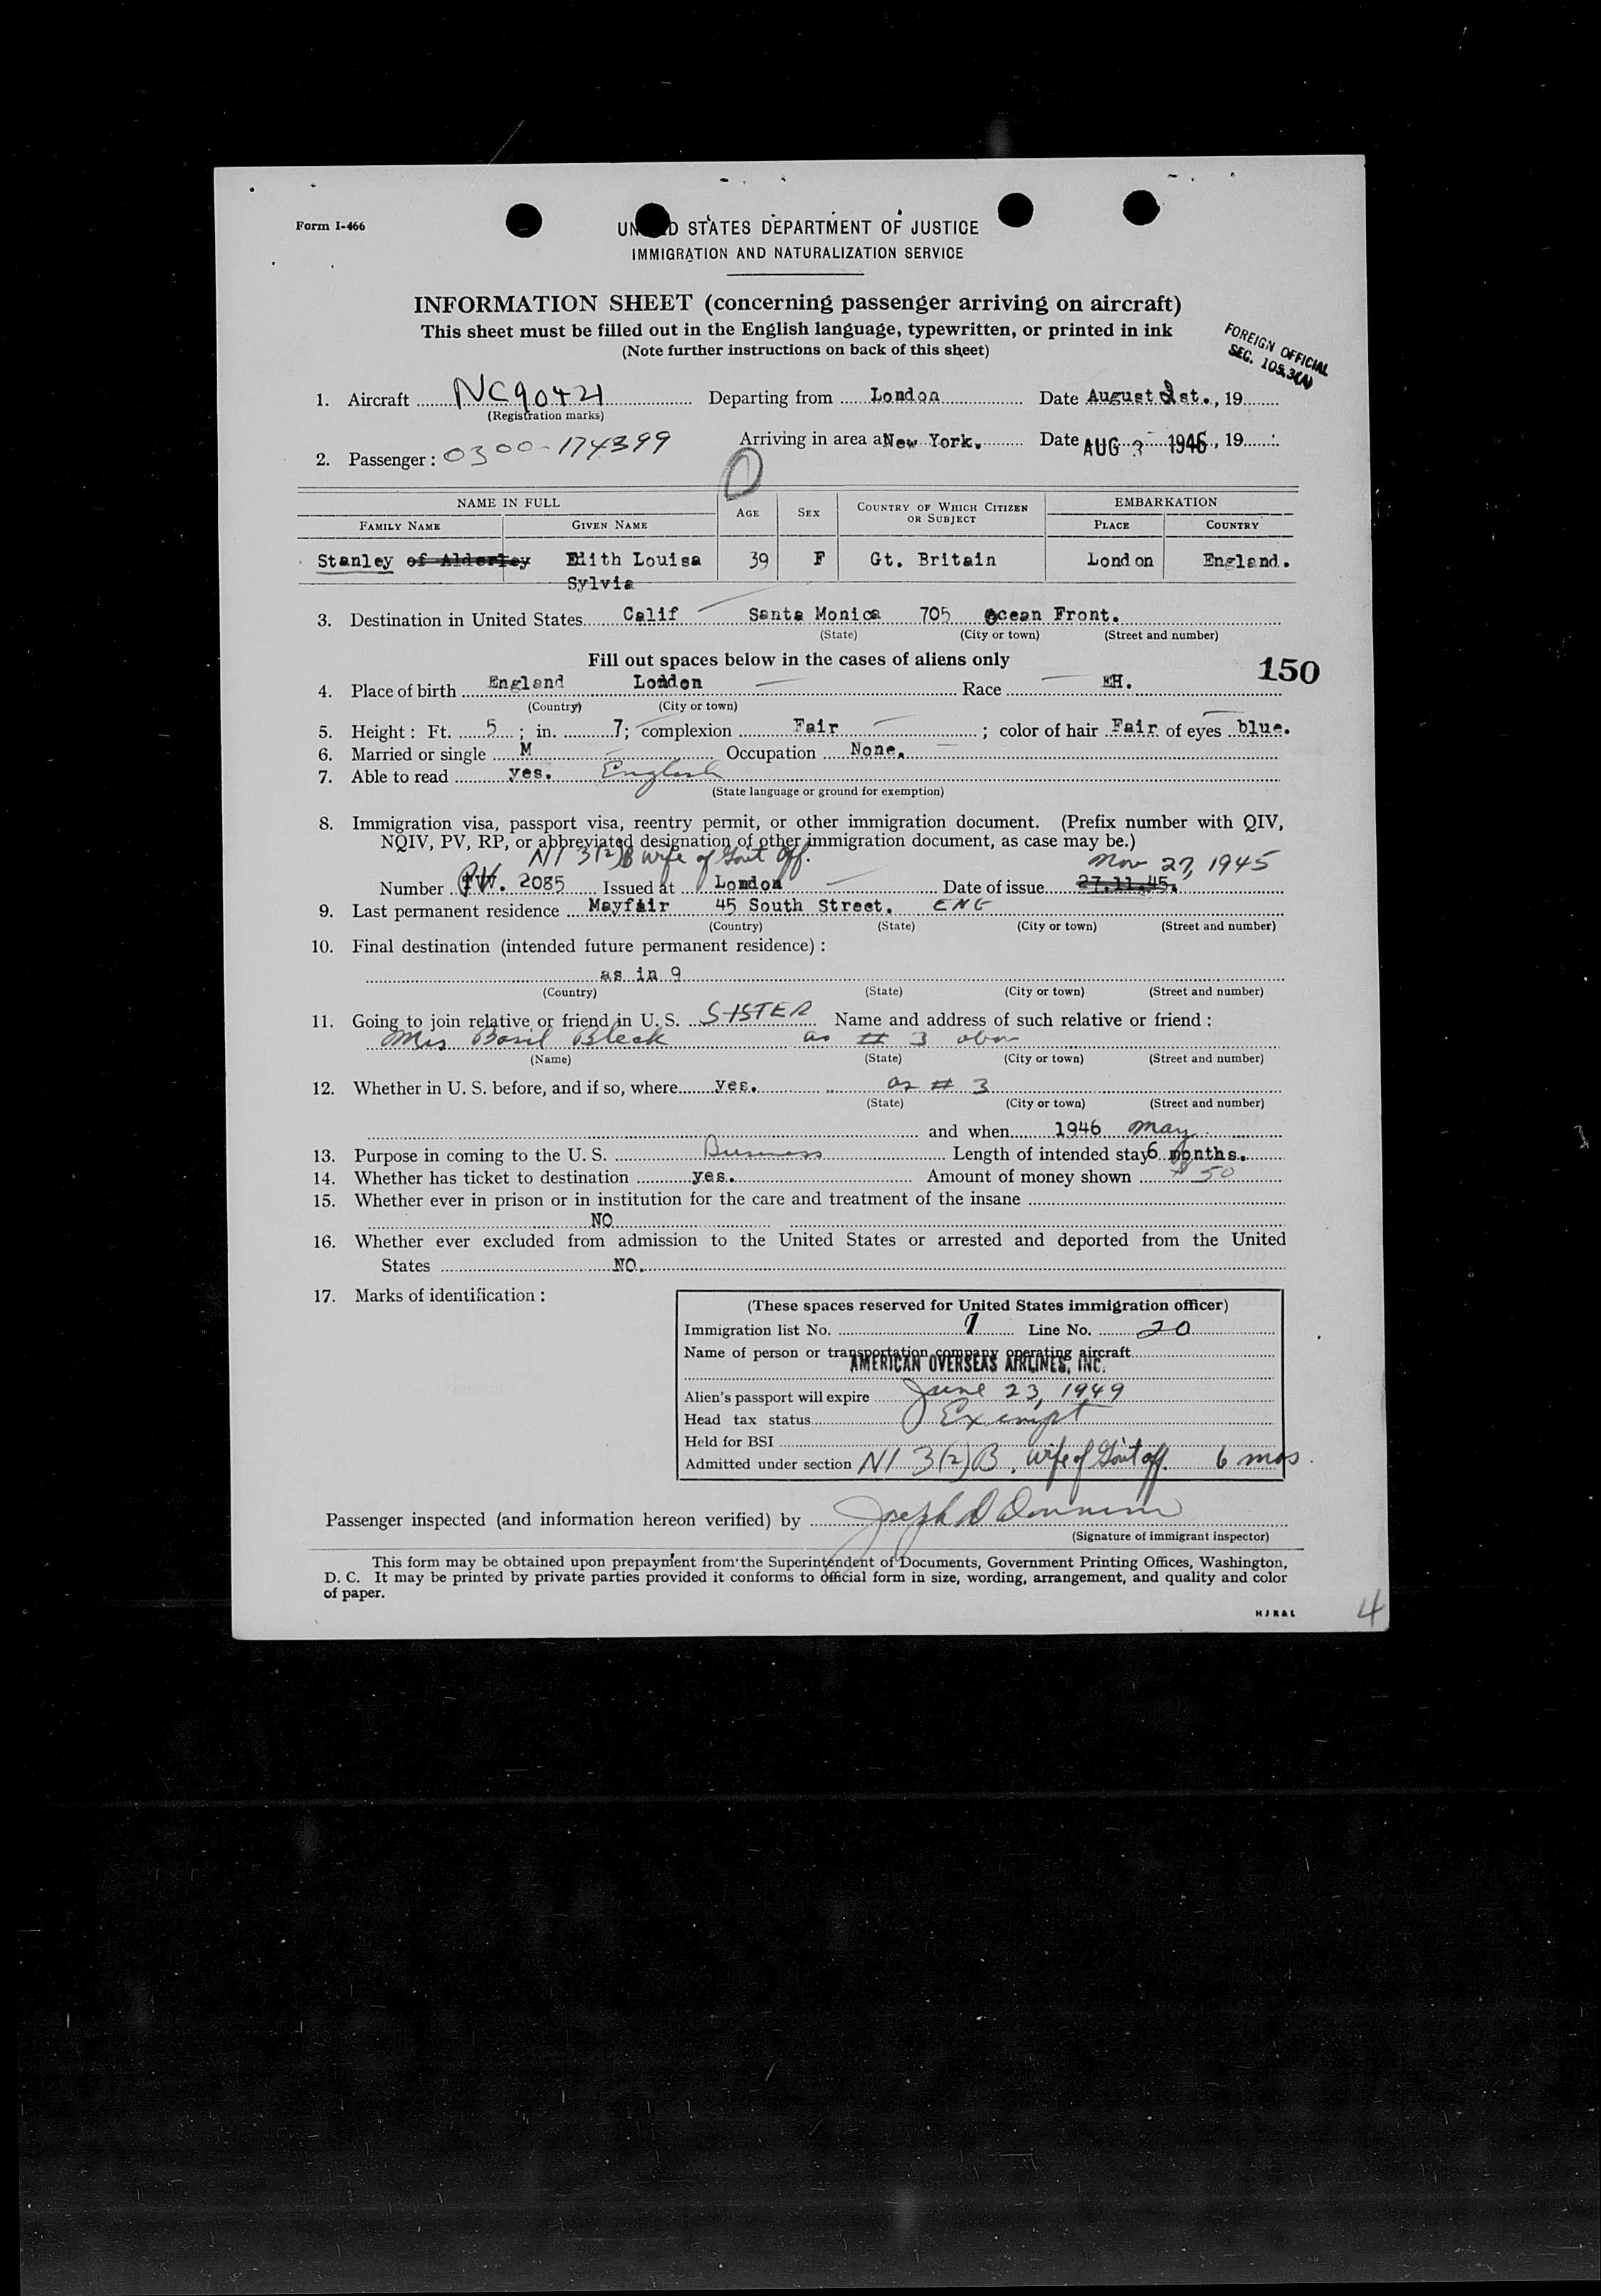 Form I-466
UN D STATES DEPARTMENT OF JUSTICE
IMMIGRATION AND NATURALIZATION SERVICE
INFORMATION SHEET (concerning passenger arriving on aircraft)
This sheet must be filled out in the English language, typewritten, or printed in ink
(Note further instructions on back of this sheet)
FOREIGN OFFICIAL
SEC. 105.3(A)
1. Aircraft NC90421 Departing from London Date August st., 19
(Registration marks)
Arriving in area a New York. Date AUG 3 1946, 19
2. Passenger: 0300-174399
NAME IN FULL AGE SEX COUNTRY OF WHICH CITIZEN OR SUBJECT EMBARKATION
FAMILY NAME GIVEN NAME PLACE COUNTRY
Stanley of Alderley Edith Louisa 39 F Gt. Britain London England.
Sylvia
3. Destination in United States Calif Santa Monica 705 Ocean Front.
(State) (City or town) (Street and number)
Fill out spaces below in the cases of aliens only
150
4. Place of birth England London Race EH.
(Country) (City or town)
5. Height: Ft. 5 ; in. 7; complexion Fair ; color of hair Fair of eyes blue.
6. Married or single M Occupation None.
7. Able to read yes. English
(State language or ground for exemption)
8. Immigration visa, passport visa, reentry permit, or other immigration document. (Prefix number with QIV,
NQIV, PV, RP, or abbreviated designation of other immigration document, as case may be.)
NI 3(2)B wife of Govt Off. Nov 27, 1945
Number PV. 2085 Issued at London Date of issue 27.11.45.
9. Last permanent residence Mayfair 45 South Street. ENG
(Country) (State) (City or town) (Street and number)
10. Final destination (intended future permanent residence):
as in 9
(Country) (State) (City or town) (Street and number)
11. Going to join relative or friend in U. S. SISTER Name and address of such relative or friend:
Mrs Basil Bleck as # 3 above
(Name) (State) (City or town) (Street and number)
12. Whether in U. S. before, and if so, where yes. as # 3
(State) (City or town) (Street and number)
and when 1946 May
13. Purpose in coming to the U. S. Business Length of intended stay 6 months.
14. Whether has ticket to destination yes. Amount of money shown $ 50
15. Whether ever in prison or in institution for the care and treatment of the insane
NO
16. Whether ever excluded from admission to the United States or arrested and deported from the United
States NO.
17. Marks of identification:
(These spaces reserved for United States immigration officer)
Immigration list No. 1 Line No. 20
Name of person or transportation company operating aircraft
AMERICAN OVERSEAS AIRLINES, INC.
Alien's passport will expire June 23, 1949
Head tax status Exempt
Held for BSI
Admitted under section NI 3(2)B, wife of Gov't off. 6 mos.
Passenger inspected (and information hereon verified) by Joseph D
(Signature of immigrant inspector)
This form may be obtained upon prepayment from the Superintendent of Documents, Government Printing Offices, Washington,
D. C. It may be printed by private parties provided it conforms to official form in size, wording, arrangement, and quality and color
of paper.
HJR&L
4